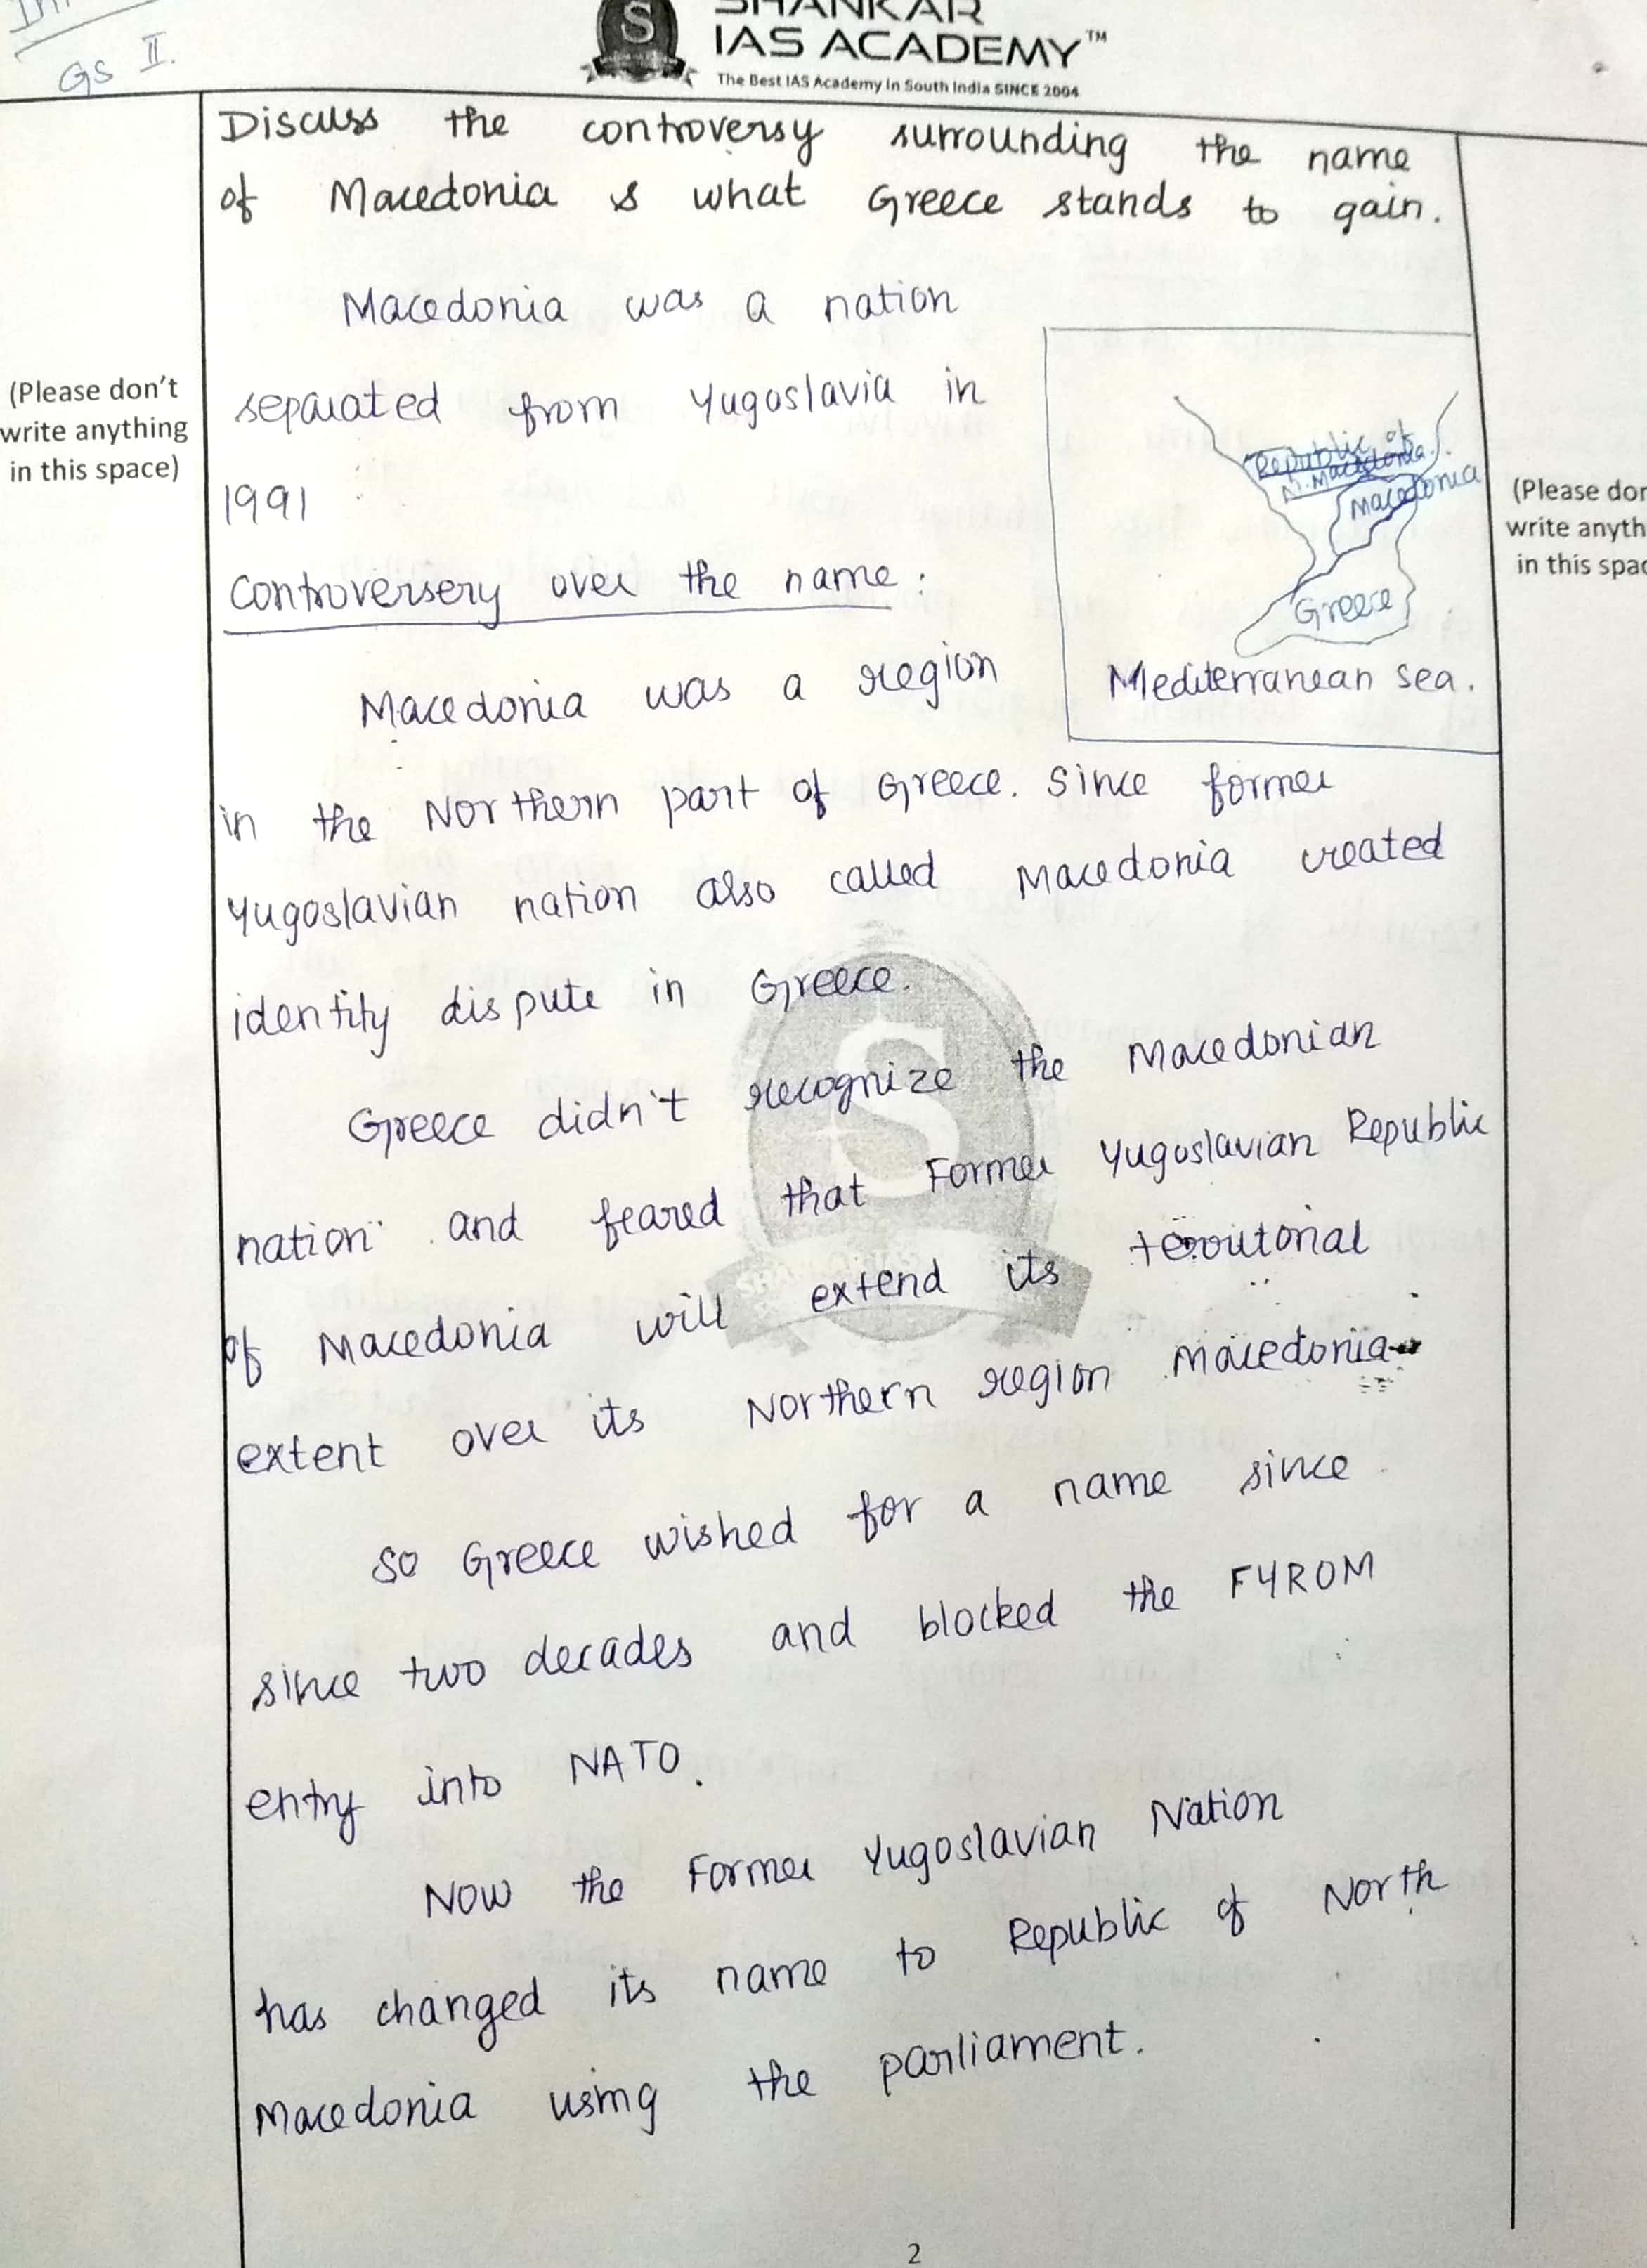 GS II.
SHANKAR
IAS ACADEMY™
The Best IAS Academy In South India SINCE 2004
Discuss the controversy surrounding the name
of Macedonia & what Greece stands to gain.
Macedonia was a nation
separated from Yugoslavia in
1991
(Please don't
write anything
in this space)
Republic of
N. Macedonia.
Macedonia
Greece
Mediterranean sea.
(Please don
write anyth
in this spac
Controversery over the name:
Macedonia was a region
in the Northern part of Greece. Since former
Yugoslavian nation also called Macedonia created
identity dispute in Greece.
Greece didn't recognize the Macedonian
nation and feared that Former Yugoslavian Republic
of Macedonia will extend its territorial
extent over its Northern region Macedonia
So Greece wished for a name since
since two decades and blocked the FYROM
entry into NATO.
Now the Former Yugoslavian Nation
has changed its name to Republic of North
Macedonia using the parliament.
2